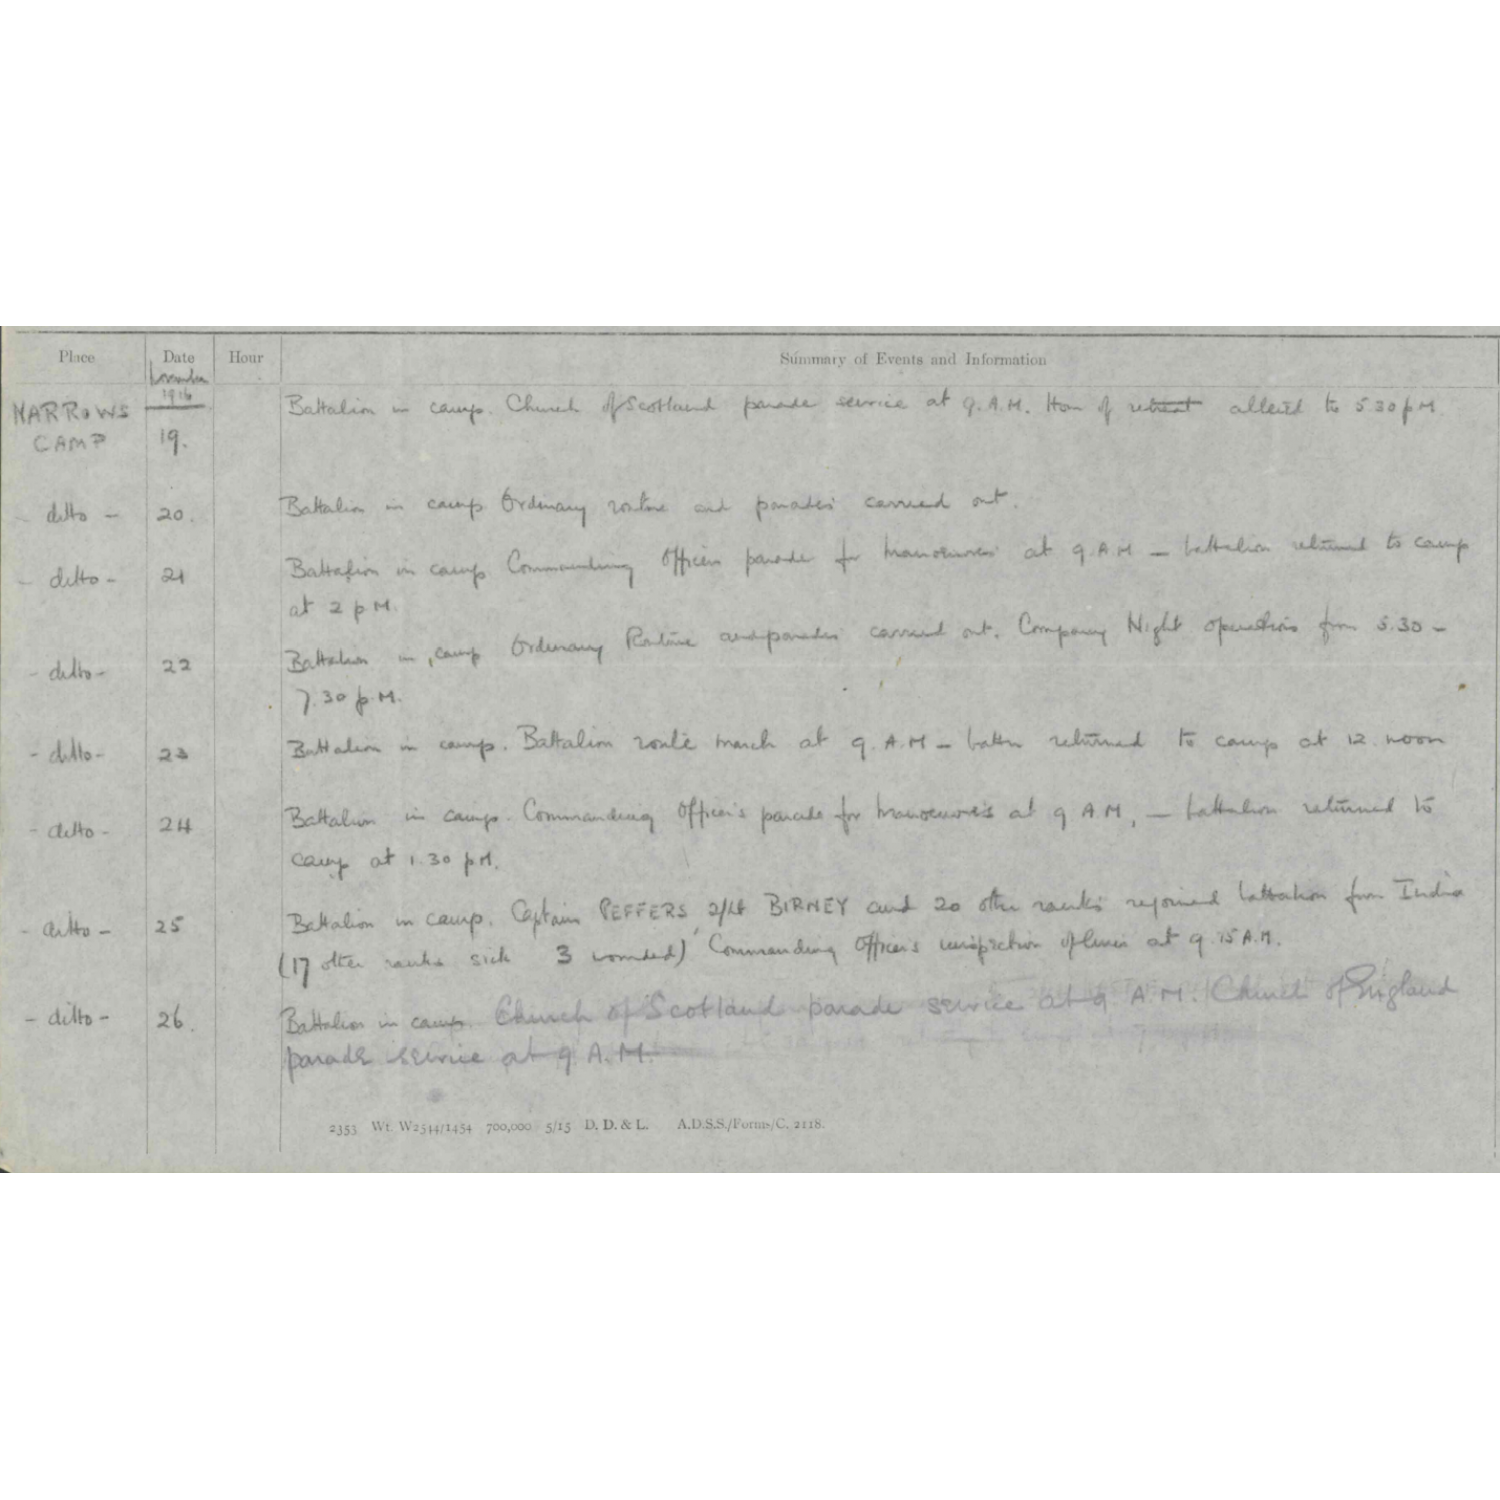 Place Date Hour Summary of Events and Information
November
1916
NARROWS Battalion in camp. Church of Scotland parade service at 9.A.M. Hour of retreat altered to 5 30 p M.
CAMP 19.
ditto - 20. Battalion in camp. Ordinary routine and parades carried out.
- ditto - 21 Battalion in camp Commanding Officers parade for manoeuvres at 9.A.M - battalion returned to camp
at 2 p M.
- ditto - 22 Battalion in camp Ordinary Routine and parades carried out. Company Night operations from 5.30 -
7.30 p.M.
- ditto - 23 Battalion in camp. Battalion route march at 9.A.M - battn returned to camp at 12 noon
- ditto - 24 Battalion in camp. Commanding Officer's parade for manoeuvres at 9 A.M, - battalion returned to
camp at 1.30 pM.
- ditto - 25 Battalion in camp. Captain PEFFERS, 2/Lt BIRNEY and 20 other ranks rejoined battalion from India
(17 other ranks sick 3 wounded) Commanding Officer's inspection of lines at 9.15 A.M.
- ditto - 26. Battalion in camp. Church of Scotland parade service at 9 A M. Church of England
parade service at 9. A. M.
2353 Wt. W2544/1454 700,000 5/15 D. D. & L. A.D.S.S./Forms/C. 2118.